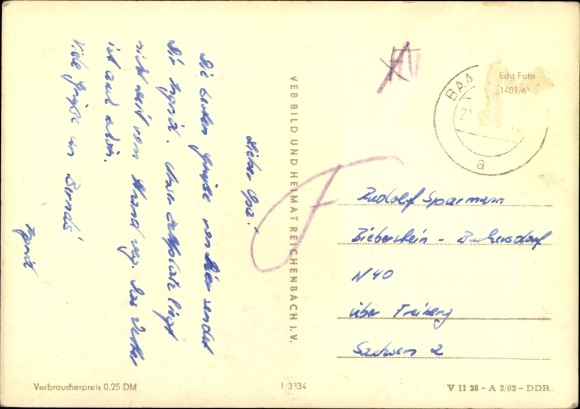 Lieber Opa!
Die besten Grüße von hier sendet
Dir Ingrid. Unser Zeltplatz liegt
nicht weit vom Strand weg. Das Wetter
ist auch
Viele Grüße an
Ingrid
VEB BILD UND HEIMAT REICHENBACH I. V.
Echt Foto
1401/6
BAA
a
Rudolf Sparmann
Bieberstein -
N 40
über Freiberg
Sachsen 2
Verbraucherpreis 0.25 DM
1/3334
V 11 28 - A 3/62 - DDR